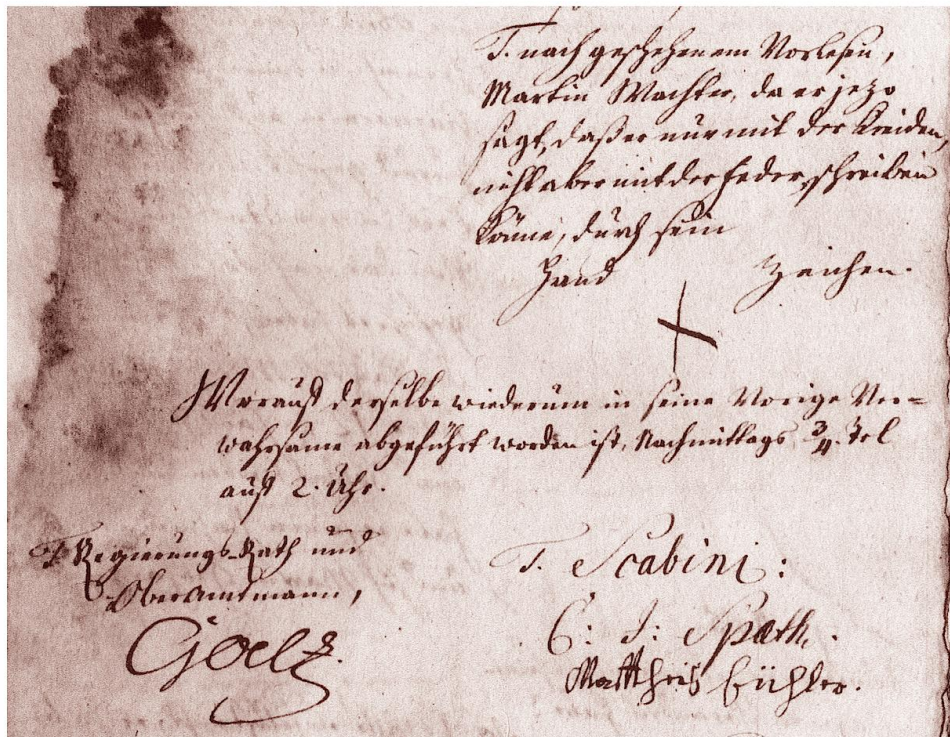 T. nach geschehenem Vorlesen,
Martin Wachter, da er jezo
sagt, daß er nur mit der Kreiden,
nicht aber mit der Feder, schreiben
könne, durch sein
Hand Zeichen.
Worauf derselbe wiederum in seine Vorige Ver=
wahrsame abgeführt worden ist, Nachmittags 3/4.tel
auf 2. Uhr.
T. Regierungs-Rath und
Oberamtmann,
Goelz.
T. Scabini:
C: J: Spath.
Mattheis Büchler.